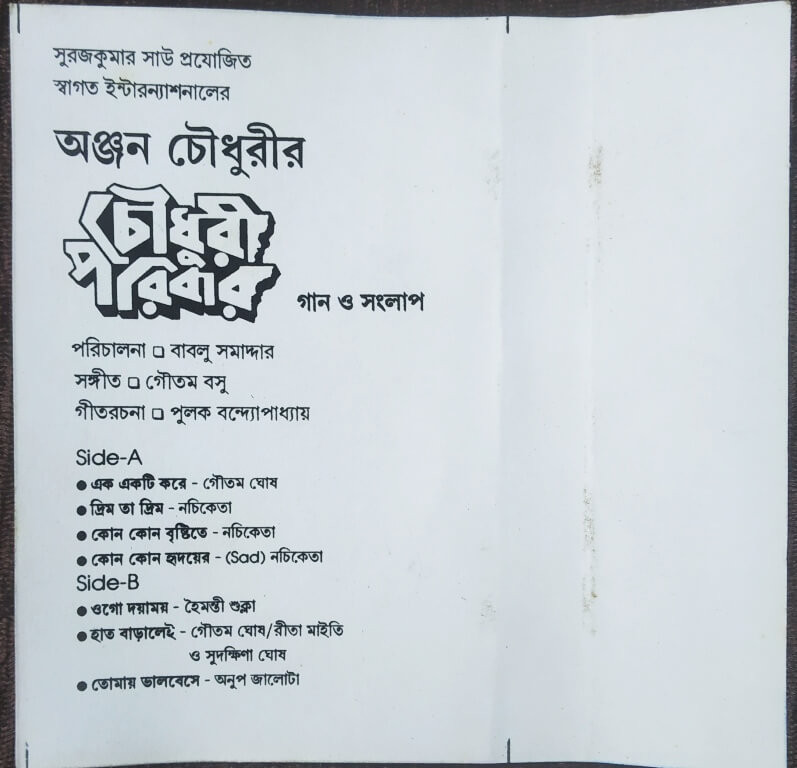 সুরজকুমার সাউ প্রযোজিত
স্বাগত ইন্টারন্যাশনালের
অঞ্জন চৌধুরীর
চৌধুরী
পরিবার
গান ও সংলাপ
পরিচালনা □ বাবলু সমাদ্দার
সঙ্গীত □ গৌতম বসু
গীতরচনা □ পুলক বন্দ্যোপাধ্যায়
Side-A
● এক একটি করে - গৌতম ঘোষ
● দ্রিম তা দ্রিম - নচিকেতা
● কোন কোন বৃষ্টিতে - নচিকেতা
● কোন কোন হৃদয়ের - (Sad) নচিকেতা
Side-B
● ওগো দয়াময় - হৈমন্তী শুক্লা
● হাত বাড়ালেই - গৌতম ঘোষ/রীতা মাইতি
ও সুদক্ষিণা ঘোষ
● তোমায় ভালবেসে - অনুপ জালোটা